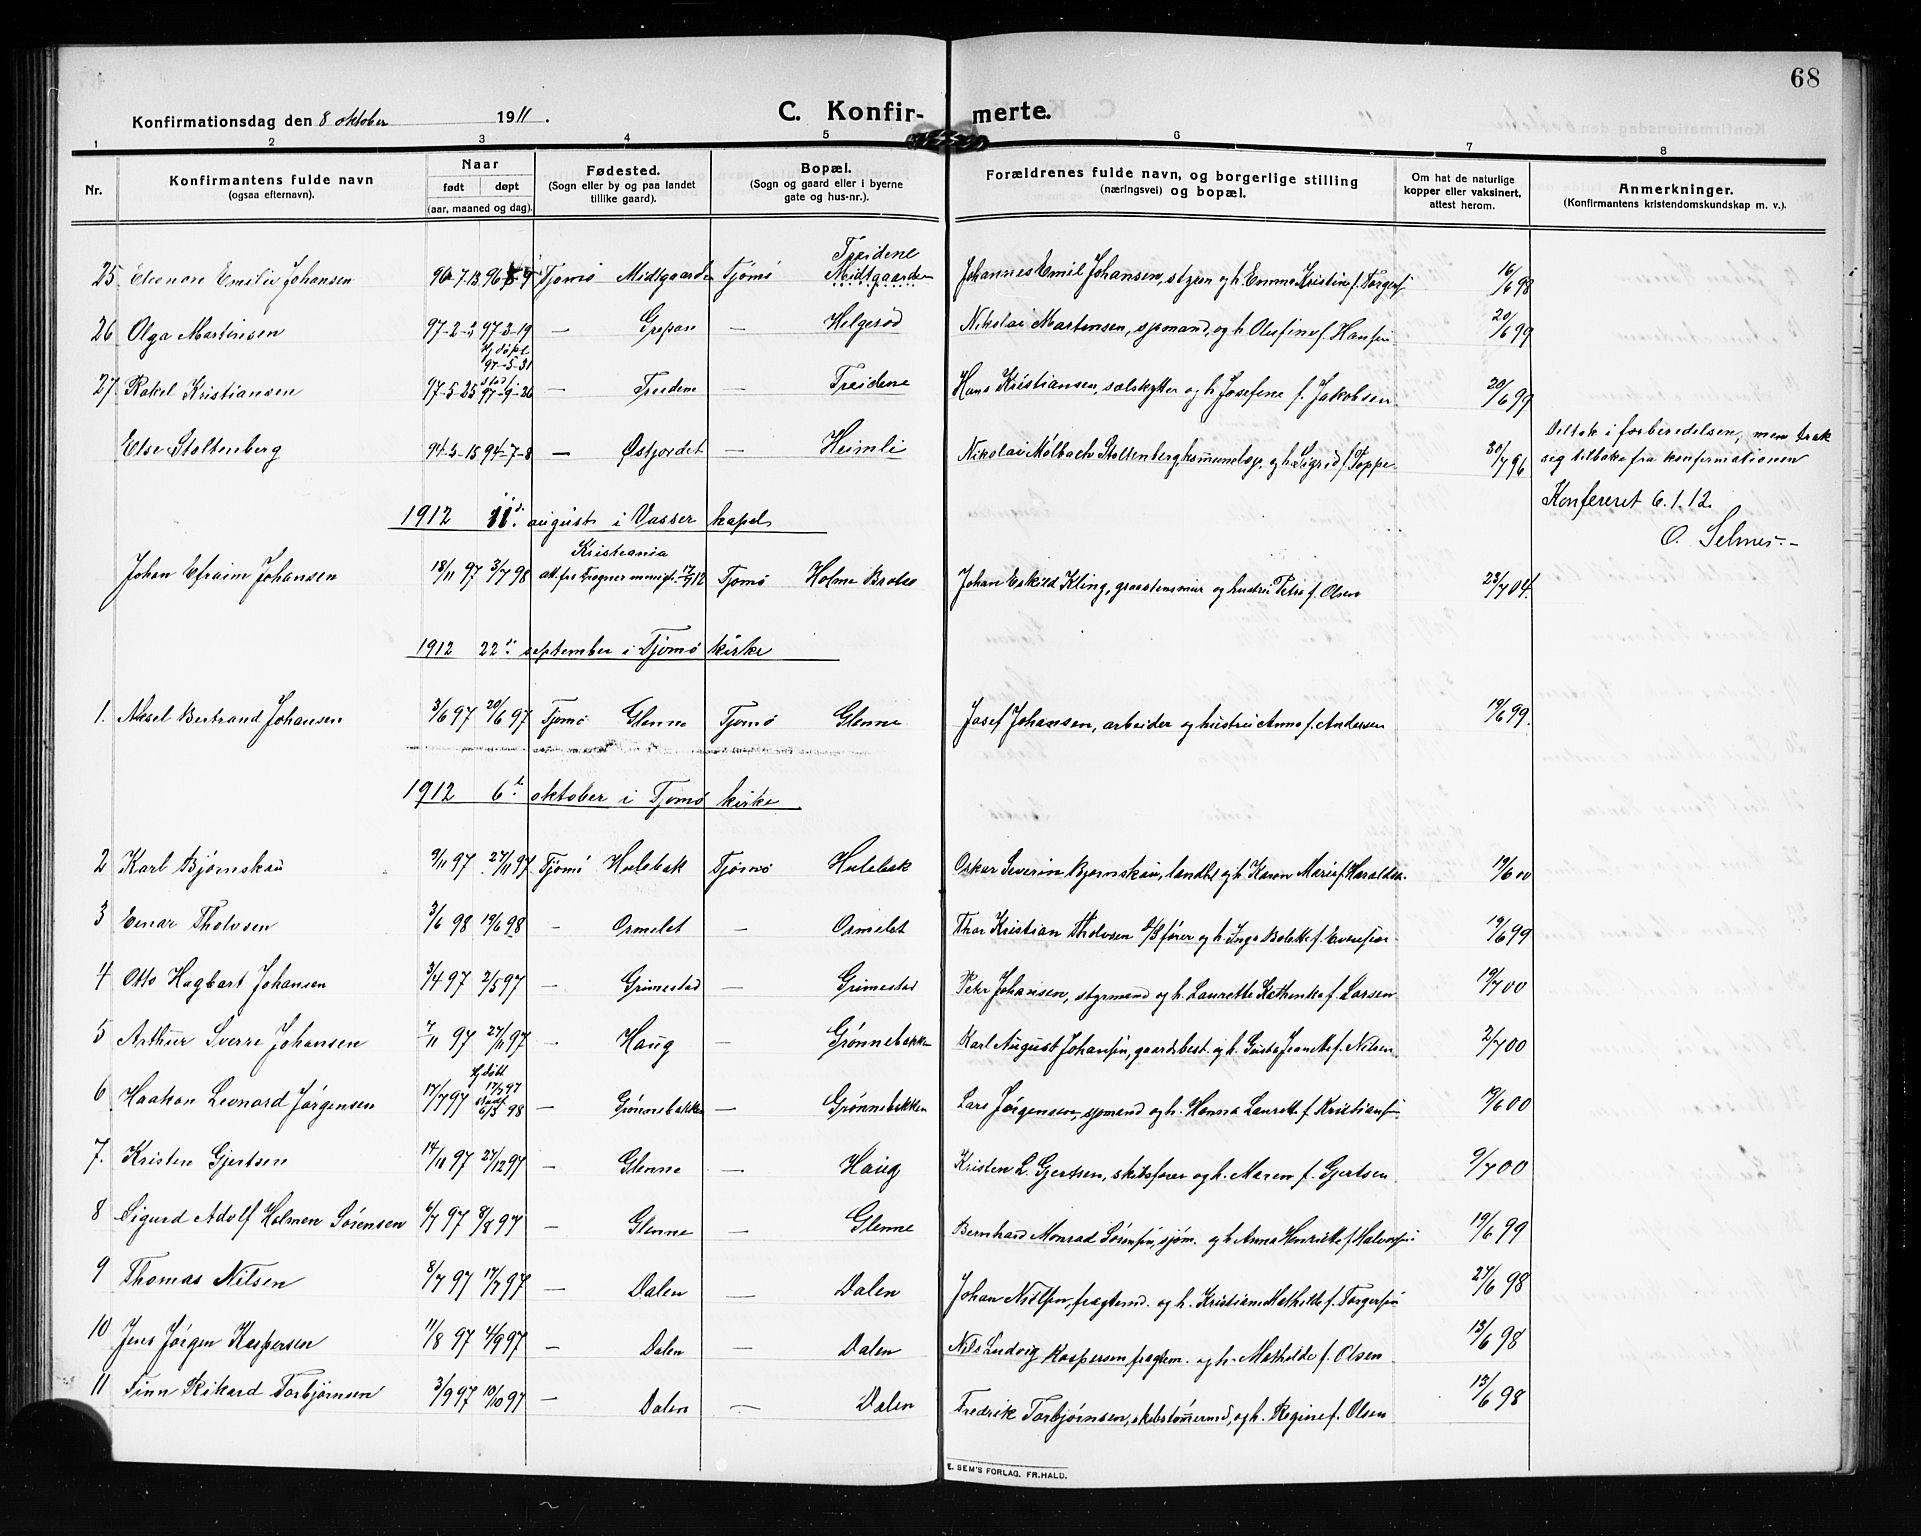 68
Konfirmationsdag den 8 oktober 1911.
C. Konfir- merte.
1 2 3 4 5 6 7 8
Nr.
Konfirmantens fulde navn
(ogsaa efternavn).
Naar
født døpt
(aar, maaned og dag).
Fødested.
(Sogn eller by og paa landet
tillike gaard).
Bopæl.
(Sogn og gaard eller i byerne
gate og hus-nr.).
Forældrenes fulde navn, og borgerlige stilling
(næringsvei) og bopæl.
Om hat de naturlige
kopper eller vaksinert,
attest herom.
Anmerkninger.
(Konfirmantens kristendomskundskap m. v.).
Treidene
25. Eleonore Emilie Johansen 96-7-13 Tjømø Midtgaarden Tjømø Midtgaarden Johannes Emil Johansen, styrm og h. Emma Kristine f. Torgersen 16/6 98
26 Olga Martinsen 97-2-3 97-3-19 — Grepan — Helgerød Nikolai Martensen, sjømand, og h. Olufine f. Hansen 20/6 99
Hj. døpt
97-5-31
stadf.
27. Rakel Kristiansen 97-5-25 97-9-26 — Treidene — Treidene Hans Kristiansen, sælskytter og h. Josefine f. Jakobsen 20/6 99
Else Stoltenberg 94-5-15 94-7-8 — Østjordet — Heimli Nikolai Molbach Stoltenberg, og h. Sigrid f. Poppe 30/7 96
Deltok i forberedelsen, men trak
sig tilbake fra konfirmationen
Konfereret 6.1.12.
O. Selmer.-
1912 11te august i Vasser kapel
Kristiania
Johan Efraim Johansen 18/11 97 3/7 98 att. fra Fragner menigh. 17/7 12 Tjømø Holme Brotsø Johan Eskild Kling, graastensmur og hustru Petra f. Olsen 23/7 04.
1912 22de september i Tjømø kirke
1. Aksel Bertrand Johansen 3/6 97 20/6 97 Tjømø Glenne Tjømø Glenne Josef Johansen, arbeider og hustru Anna f. Andersen 19/6 99.
1912 6te oktober i Tjømø kirke
2 Karl Bjørnskau 9/11 97 27/11 97 Tjømø Hulebak Tjømø Hulebak Oskar Severin Bjørnskau, landbr og h. Karen Marie f. Haraldsen. 19/6 00
3 Einar Tholvsen 3/6 98 19/6 98 — Ormelet — Ormelet Thor Kristian Tholvsen fører og h. Inga Bolette f. Evensen 19/6 99
4 Otto Hagbart Johansen 3/4 97 2/5 97 — Grimestad — Grimestad Peter Johansen, styrmand og h. Laurette Kathinka f. Larsen 19/7 00
5 Arthur Sverre Johansen 7/11 97 27/11 97 — Haug — Grønnebakken Karl August Johansen, gaardbest. og h. Gusta Jeanette f. Nilsen 2/7 00
Hj døbt
17/7 97
stadf
6 Haakon Leonard Jørgensen 17/7 97 6/3 98 — Grønnebakken — Grønnebakken Lars Jørgensen, sjømand og h. Hanna Laurette f. Kristiansen 19/6 00
7. Kristen Gjertsen 14/11 97 27/12 97 — Glenne — Haug Kristen L. Gjertsen, skibsfører og h. Maren f. Gjertsen 9/7 00
8 Sigurd Adolf Holmen Sørensen 6/7 97 8/8 97 — Glenne — Glenne Bernhard Monrad Sørensen, sjøm. og h. Anna Henriette f. Halvorsen 19/6 99
9 Thomas Nilsen 8/7 97 17/7 97 — Dalen — Dalen Johan Nielsen, fragtemd. og h. Kristiane Mathilde f. Torgersen 27/6 98
10 Jens Jørgen Kaspersen 11/8 97 4/9 97 — Dalen — Dalen Nils Ludvig Kaspersen, fragtem. og h. Mathilde f. Olsen 13/6 98
11 Finn Rikard Torbjørnsen 3/9 97 10/10 97 — Dalen — Dalen Fredrik Torbjørnsen, skibstømmermd, og h. Regine f. Olsen 13/6 98
E. SEM'S FORLAG, FR.HALD.